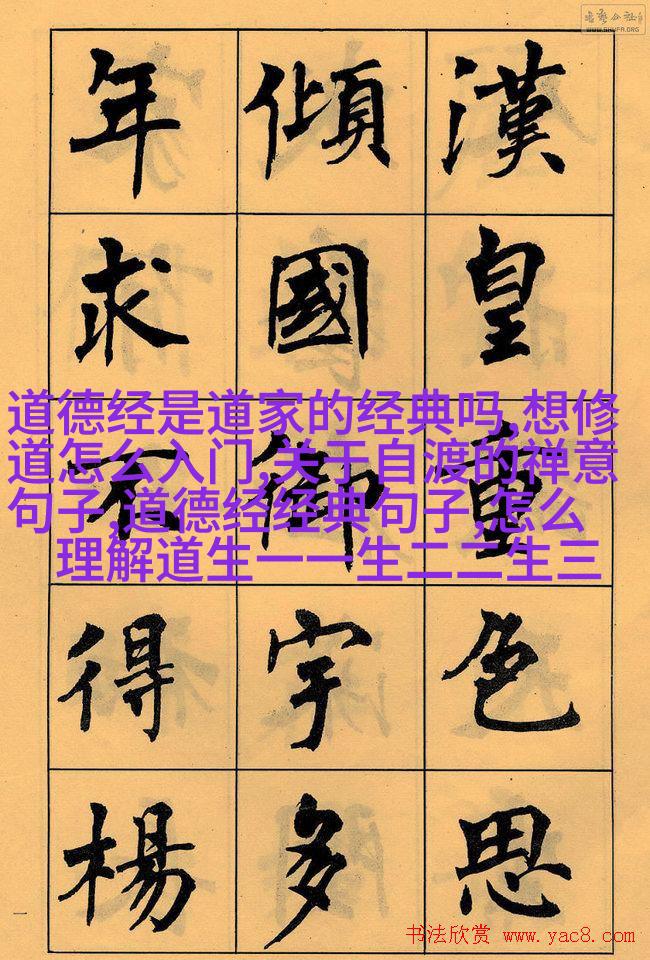 WWW.SHUFA.ORG
漢皇重色思
傾國御宇多
年求不得楊
道德经是道家的经典吗,想修
道怎么入门,关于自渡的禅意
句子,道德经经典句子,怎么
理解道生一一生二二生三
一
书法欣赏 www.yac8.com